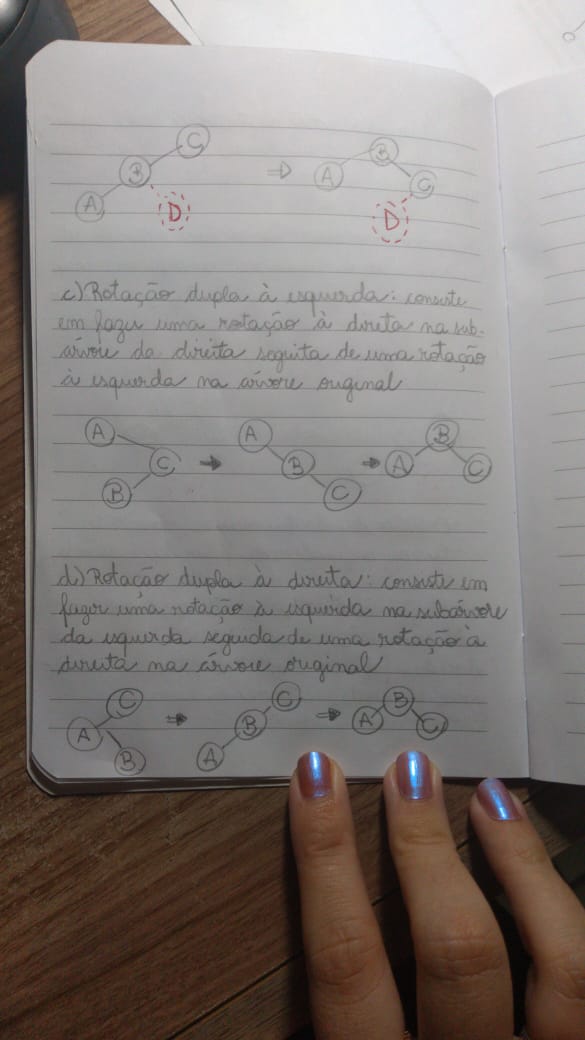 C
B ⇒ B
A A C
D D
c) Rotação dupla à esquerda: consiste
em fazer uma rotação à direita na sub-
árvore da direita seguita de uma rotação
à esquerda na árvore original
A A B
C → B → A C
B C
d) Rotação dupla à direita: consiste em
fazer uma rotação à esquerda na subárvore
da esquerda seguida de uma rotação à
direita na árvore original
C C B
A ⇒ B ⇒ A C
B A